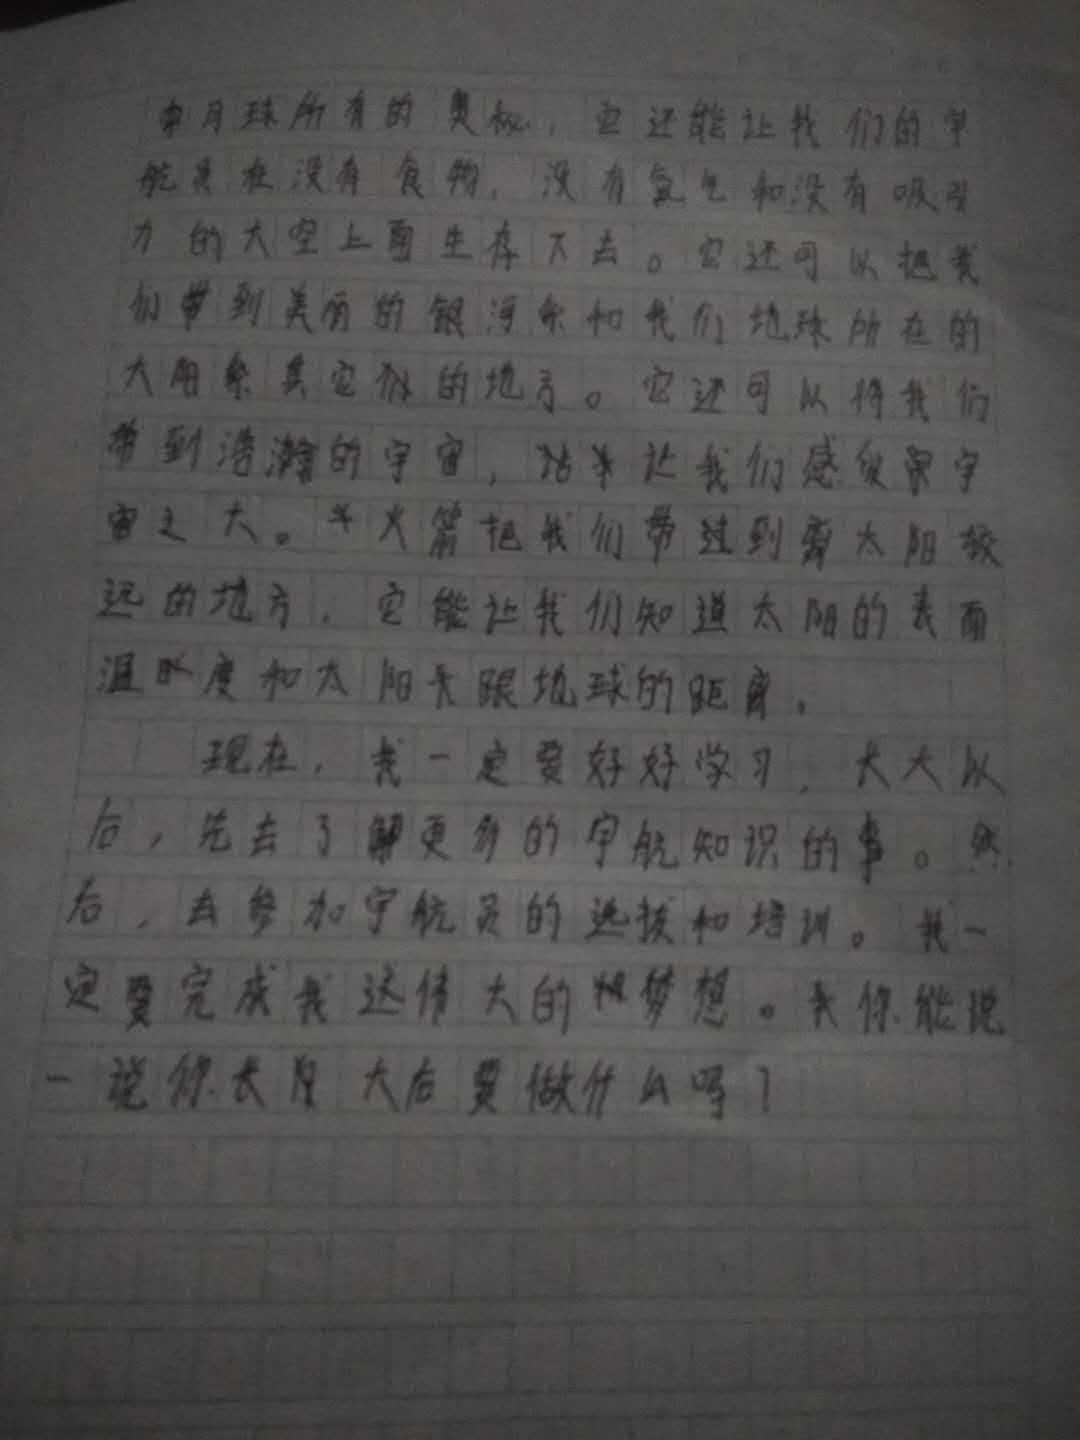 月球所有的奥秘，它还能让我们的宇
航员在没有食物，没有氧气和没有吸引
力的太空上面生存下去。它还可以把我
们带到美丽的银河系和我们地球所在的
太阳系其它的地方。它还可以将我们
带到浩瀚的宇宙，让我们感受宇
宙之大。火箭把我们带过到离太阳较
远的地方，它能让我们知道太阳的表面
温度和太阳跟地球的距离。
现在，我一定要好好学习，长大以
后，先去了解更多的宇航知识的事。然
后，去参加宇航员的选拔和培训。我一
定要完成我这伟大的梦想。你能说
一说你长大后要做什么吗？